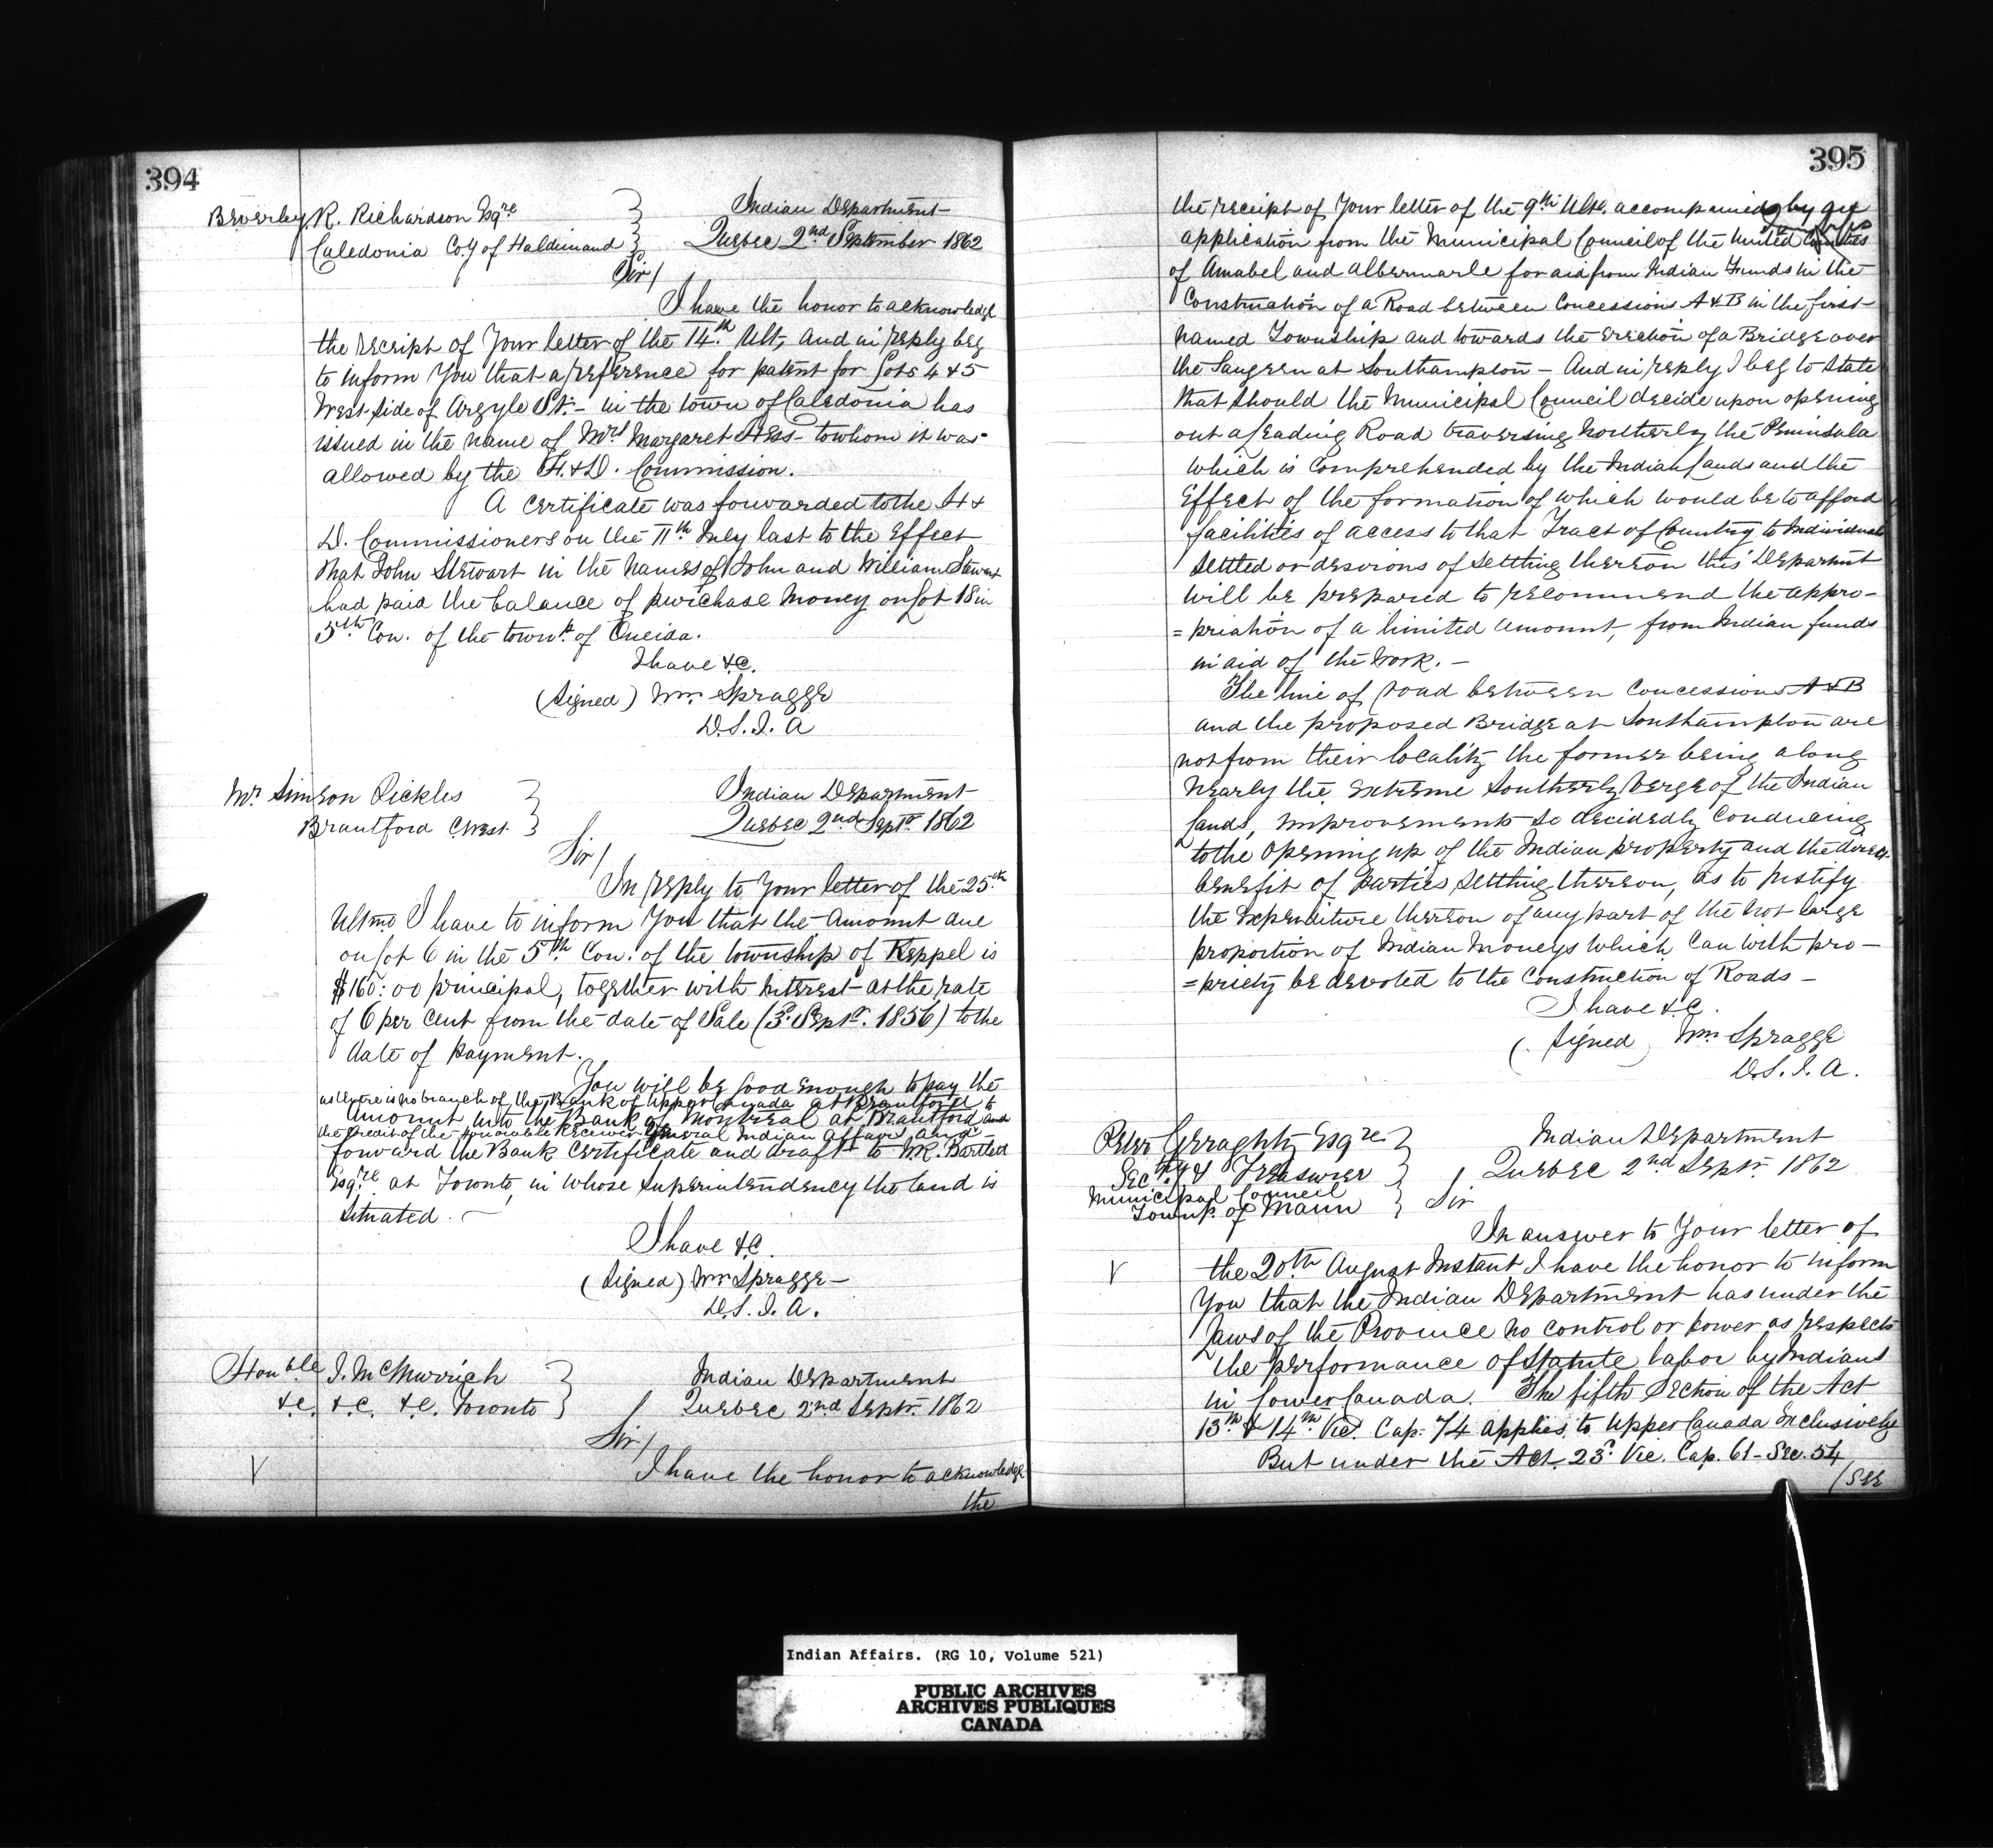 394
Beverley R. Richardson Esqre
Caledonia Coy of Haldimand
Indian Department
Quebec 2nd September 1862
Sir/
I have the honor to acknowledge
the receipt of Your letter of the 14th Ult, and in reply beg
to inform You that a reference for patent for Lots 4 & 5
West side of Argyle St. - in the town of Caledonia has
issued in the name of Mrs Margaret Hess - to whom it was
allowed by the H. & D. Commission.
A Certificate was forwarded to the H &
D. Commissioners on the 11th July last to the Effect
that John Stewart in the names of John and William Stewart
had paid the balance of purchase Money on Lot 18 in
5th Con. of the townp of Oneida.
I have &c.
(Signed) Wm Spragge
D.S.I.A
Mr Simeon Pickles
Brantford C.West
Indian Department
Quebec 2nd Septr 1862
Sir/
In reply to Your letter of the 25th
Ultmo I have to inform You that the Amount due
on Lot 6 in the 5th Con. of the township of Keppel is
$160:00 principal, together with Interest at the rate
of 6 per Cent from the date of Sale (3d Septr. 1856) to the
date of payment.
You will be Good Enough to pay the
as there is no branch of the Bank of Upper Canada at Brantford to
Amount into the Bank of Montreal at Brantford and
the Credit of the Honorable Receiver General Indian Affairs and
forward the Bank Certificate and draft to W.R. Bartlett
Esqre at Toronto, in whose Superintendency the land is
Situated. -
I have &c.
(Signed) Wm Spragge -
D.S.I.A.
Honble J. McMurrich
&c. &c. &c. Toronto
Indian Department
Quebec 2nd Septr. 1862
Sir/
V
I have the honor to acknowledge
the
395
the receipt of Your letter of the 9th Ulto. accompanied by an
application from the Municipal Council of the United
of Amabel and Albermarle for aid from Indian Funds in the
Construction of a Road between Concessions A & B in the first
named Township and towards the Erection of a Bridge over
the Saugeen at Southampton - And in reply I beg to State
that should the Municipal Council decide upon opening
out a leading Road traversing Northerly the Peninsula
which is Comprehended by the Indian Lands and the
Effect of the formation of which would be to afford
facilities of access to that Tract of Country to Individuals
Settled or desirous of Settling thereon this Departmt
will be prepared to recommend the appro-
=priation of a limited amount, from Indian funds
in aid of the Work. -
The line of road between Concessions A & B
and the proposed Bridge at Southampton are
not from their locality the former being along
Nearly the Extreme Southerly Verge of the Indian
Lands, Improvements So decidedly Conducing
to the Opening up of the Indian property and the direct
benefit of parties Settling thereon, as to Justify
the Expenditure thereon of any part of the not large
proportion of Indian Moneys which Can with pro-
=priety be devoted to the Construction of Roads -
I have &c.
(Signed) Wm Spragge
D.S.I.A.
Peter Gerraghty Esqre
Secty & Treasurer
Municipal Council
Townp. of Mann
Indian Department
Quebec 2nd Septr 1862
Sir
In answer to Your letter of
V
the 20th August Instant I have the honor to inform
You that the Indian Department has under the
Laws of the Province no control or power as respects
the performance of Statute labor by Indians
in Lower Canada. The fifth Section of the Act
13th & 14th Vic. Cap. 74 applies to Upper Canada Inclusively
But under the Act. 23d. Vic. Cap. 61 - Sec. 54
/see
Indian Affairs. (RG 10, Volume 521)
PUBLIC ARCHIVES
ARCHIVES PUBLIQUES
CANADA